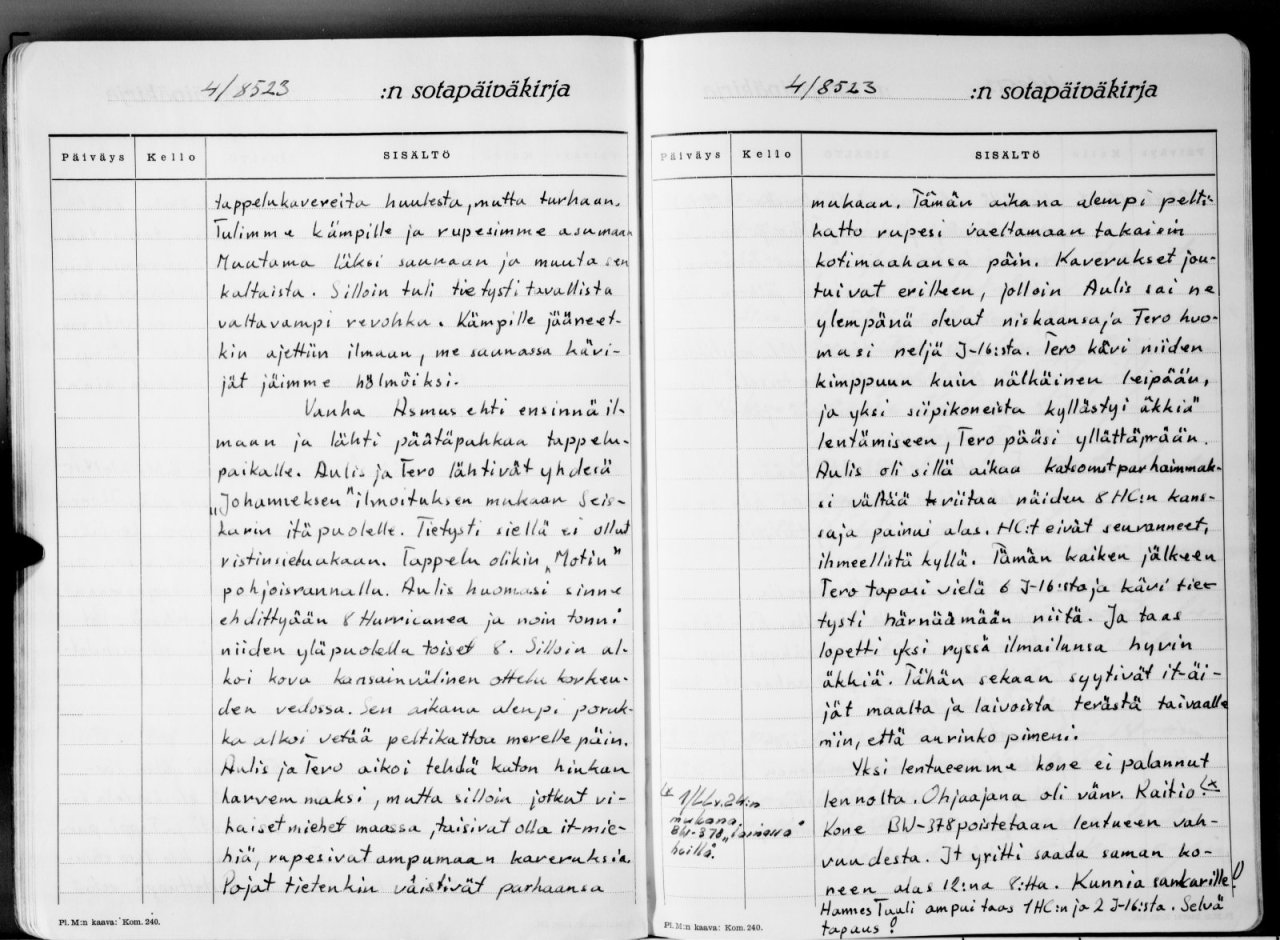 4/8523 :n sotapäiväkirja
Päiväys Kello SISÄLTÖ
tappelukavereita huulesta, mutta turhaan.
Tulimme kämpille ja rupesimme asumaan
Muutama läksi saunaan ja muuta sen
kaltaista. Silloin tuli tietysti tavallista
valtavampi revohka. Kämpille jääneet-
kin ajettiin ilmaan, me saunassa kävi-
jät jäimme hölmöiksi.
Vanha Asmus ehti ensinnä il-
maan ja lähti päätäpahkaa tappelu-
paikalle. Aulis ja Tero lähtivät yhdessä
„Johanneksen" ilmoituksen mukaan Seis-
karin itäpuolelle. Tietysti siellä ei ollut
ristinsieluakaan. Tappelu olikin „Motin"
pohjoisrannalla. Aulis huomasi sinne
ehdittyään 8 Hurricanea ja noin tonni
niiden yläpuolella toiset 8. Silloin al-
koi kova kansainvälinen ottelu korkeu-
den vedossa. Sen aikana alempi poruk-
ka alkoi vetää peltikattoa merelle päin.
Aulis ja Tero aikoi tehdä katon hiukan
harvemmaksi, mutta silloin jotkut vi-
haiset miehet maassa, taisivat olla it-mie-
hiä, rupesivat ampumaan kaveruksia.
Pojat tietenkin väistivät parhaansa
Pl. M:n kaava: Kom. 240.
4/8523 :n sotapäiväkirja
Päiväys Kello SISÄLTÖ
mukaan. Tämän aikana alempi pelti-
katto rupesi vaeltamaan takaisin
kotimaahansa päin. Kaverukset jou-
tuivat erilleen, jolloin Aulis sai ne
ylempänä olevat niskaansa ja Tero huo-
masi neljä J-16:sta. Tero kävi niiden
kimppuun kuin nälkäinen leipään,
ja yksi siipikoneista kyllästyi äkkiä
lentämiseen, Tero pääsi yllättämään.
Aulis oli sillä aikaa katsonut parhaimmak-
si välttää riitaa näiden 8 HC:n kans-
sa ja painui alas. HC:t eivät seuranneet,
ihmeellistä kyllä. Tämän kaiken jälkeen
Tero tapasi vielä 6 J-16:sta ja kävi tie-
tysti härnäämään niitä. Ja taas
lopetti yksi ryssä ilmailunsa hyvin
äkkiä. Tähän sekaan syytivät it-äi-
jät maalta ja laivoista terästä taivaalle
niin, että aurinko pimeni.
Yksi lentueemme kone ei palannut
lennolta. Ohjaajana oli vänr. Raitio. (x
(x 1/LLv. 24:n
mukana.
BW-378 „lainassa"
heillä.
Kone BW-378 poistetaan lentueen vah-
vuudesta. It yritti saada saman ko-
neen alas 12:na 8:tta. Kunnia sankarille!
Hannes Tauli ampui taas 1 HC:n ja 2 J-16:sta. Selvä
tapaus!
Pl. M:n kaava: Kom. 240.